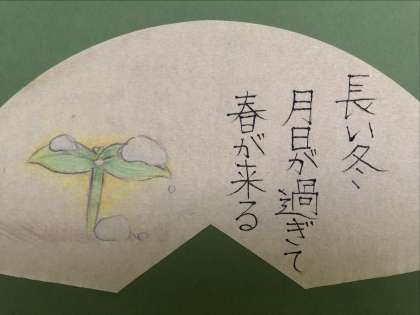 長い冬、
月日が過ぎて
春が来る